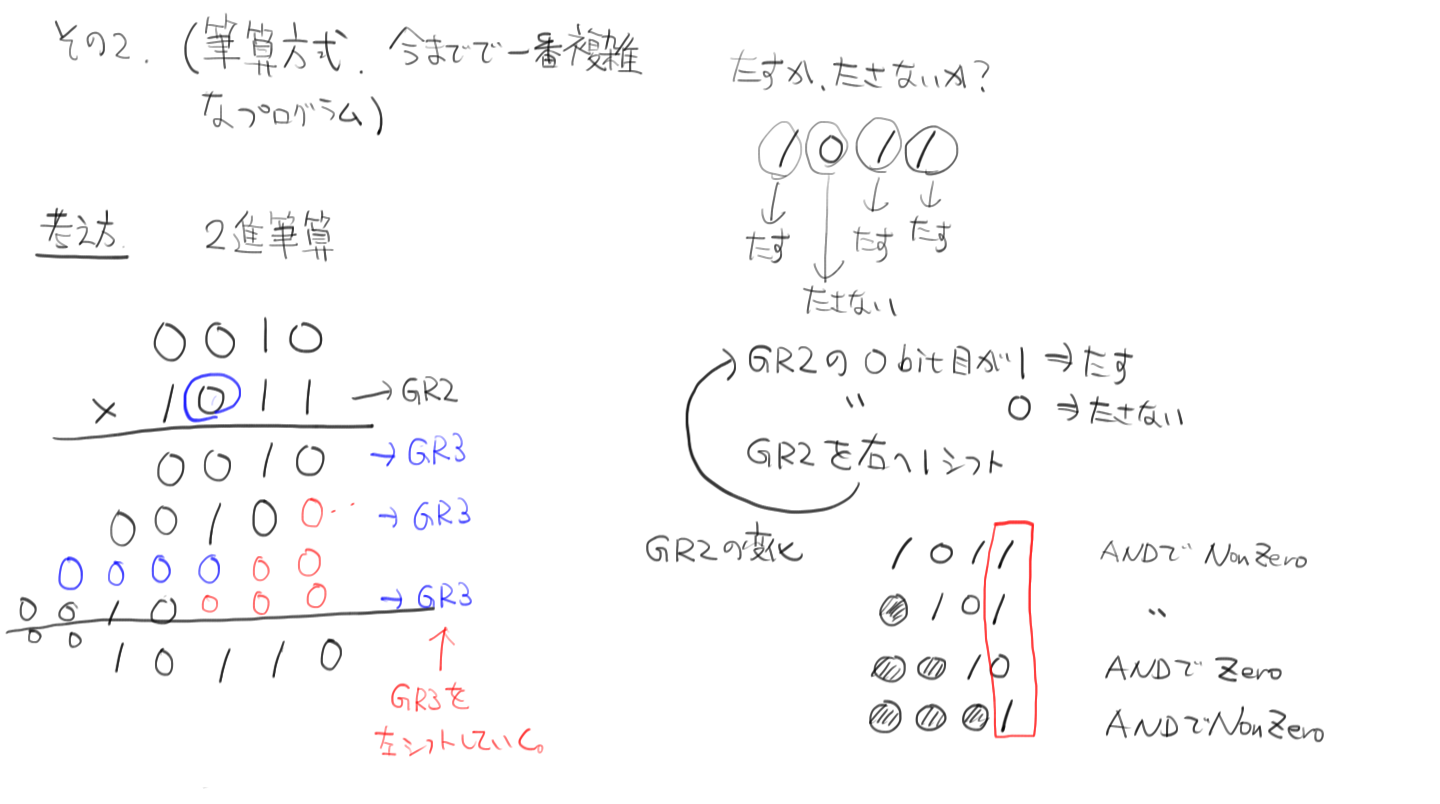 その2. (筆算方式. 今までで一番複雑
なプログラム)
考え方 2進筆算
0010
× 1011 → GR2
0010 → GR3
00100‥ → GR3
000000
0010000 → GR3
0010110
GR3を
左シフトしていく。
たすか、たさないか?
1011
たす たす たす
たさない
GR2の0bit目が1 ⇒ たす
〃 0 ⇒ たさない
GR2を右へ1シフト
GR2の変化 1011 ANDでNonZero
101 〃
10 ANDでZero
1 ANDでNonZero